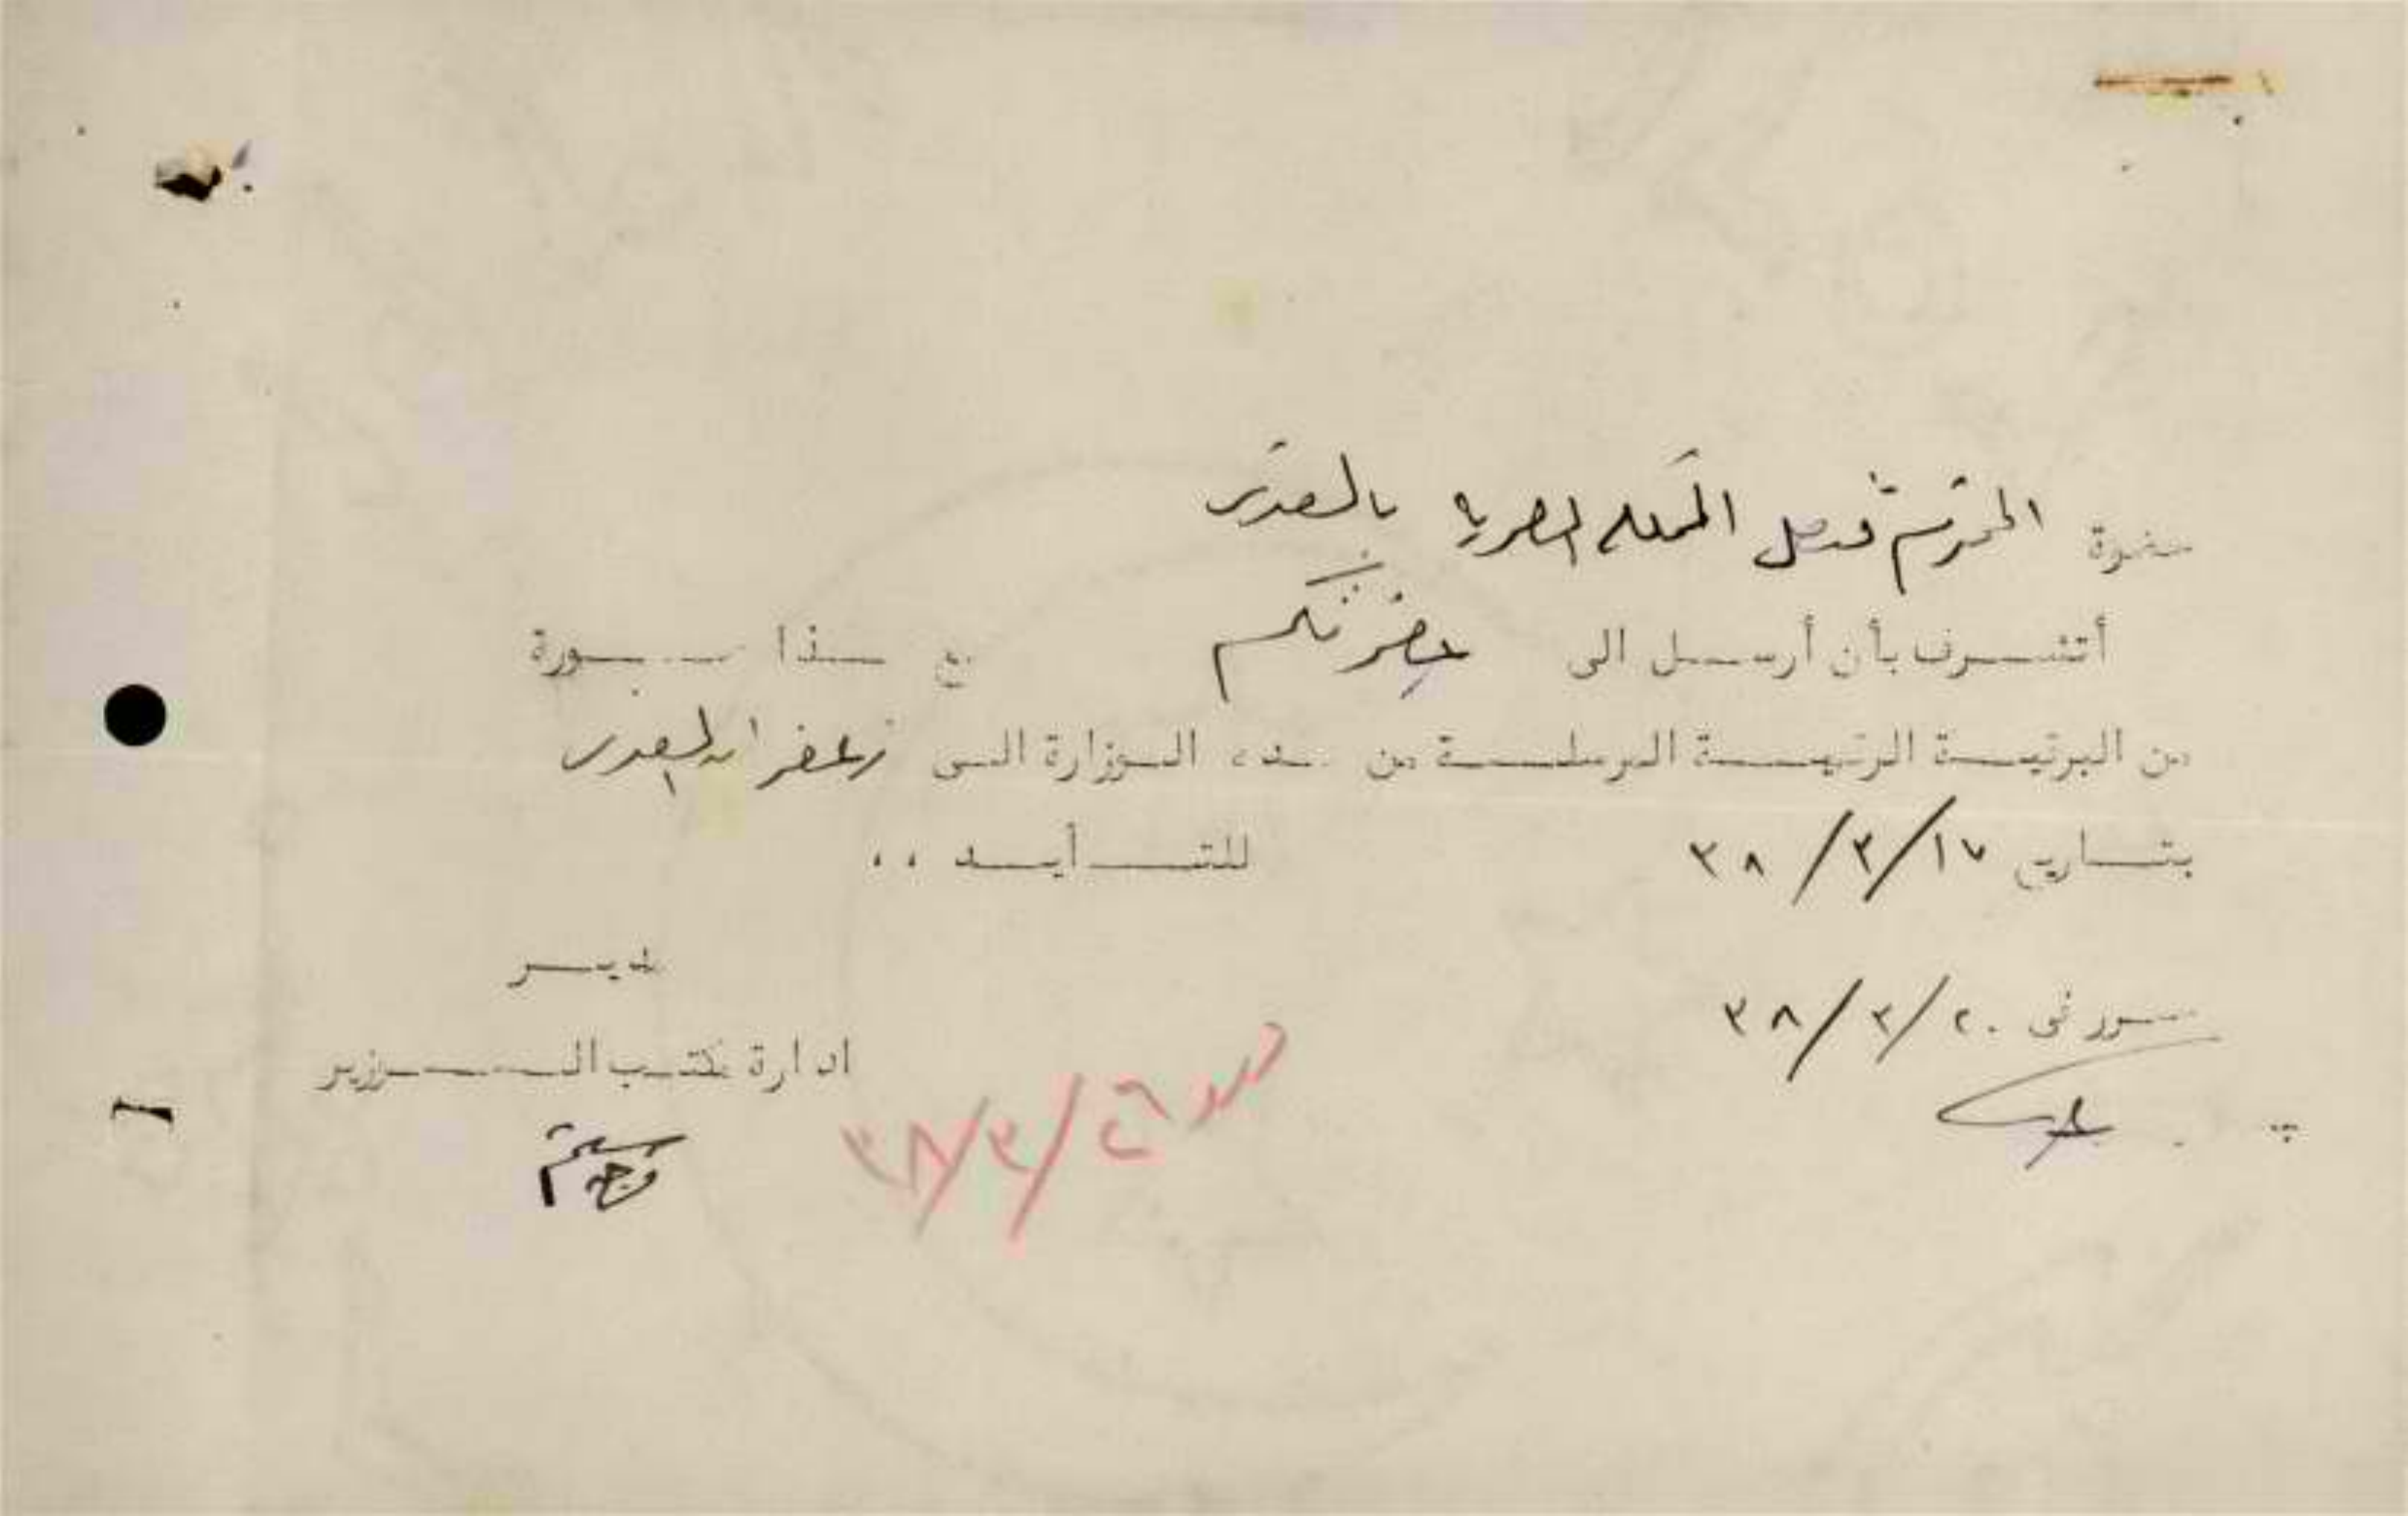 حضرة المحترم قنصل المملكة المصرية بالقدس
أتشرف بأن أرسل الى حضرتكم مع هذا صورة
من البرقية الرئيسية المرسلة من هذه الوزارة الى زعفران القدس
بتاريخ ١٧/٣/٣٨ للتأييد ،،
تحرر فى ٢٠/٣/٣٨
مدير
ادارة مكتب الوزير
٢٦/٣/٣٨